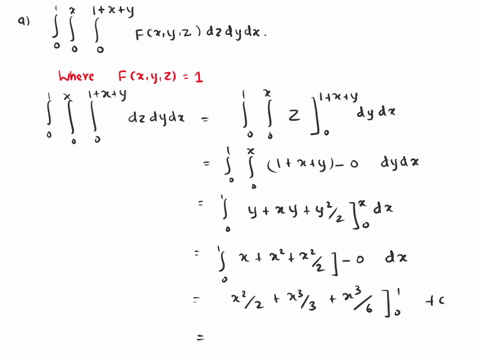 a) ∫₀¹ ∫₀ˣ ∫₀^(1+x+y) F(x,y,z) dz dy dx.
Where F(x,y,z) = 1
∫₀¹ ∫₀ˣ ∫₀^(1+x+y) dz dy dx = ∫₀¹ ∫₀ˣ z ]₀^(1+x+y) dy dx
= ∫₀¹ ∫₀ˣ (1+x+y) - 0 dy dx
= ∫₀¹ y + xy + y²/2 ]₀ˣ dx
= ∫₀¹ x + x² + x²/2 ] - 0 dx
= x²/2 + x³/3 + x³/6 ]₀¹ +c
=